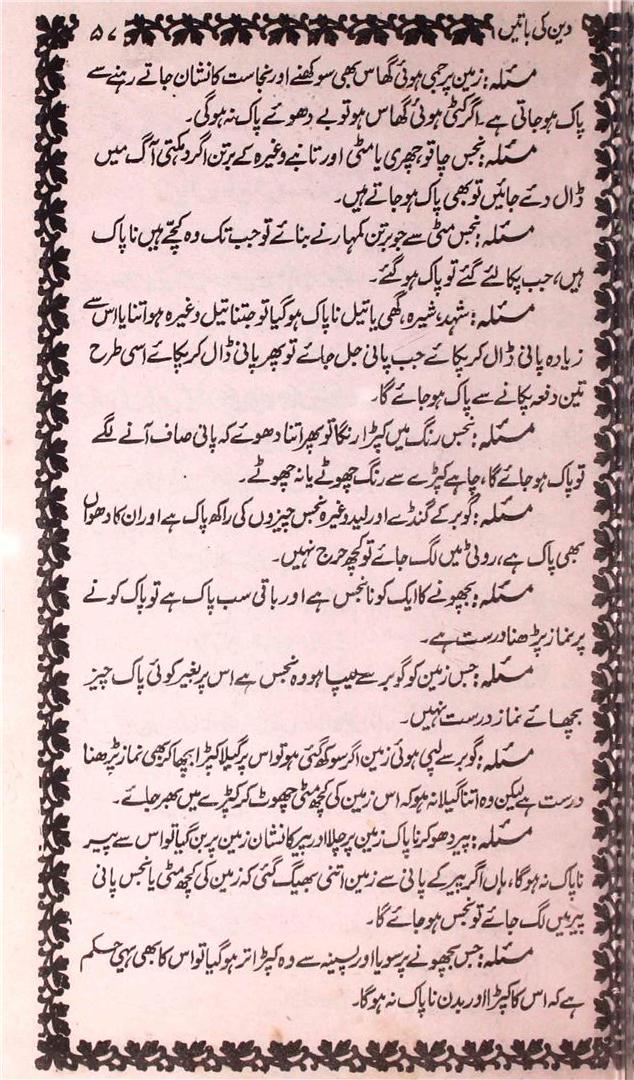 دین کی باتیں ۵۷
مسئلہ: زمین پر جمی ہوئی گھاس بھی سوکھنے اور نجاست کا نشان جاتے رہنے سے
پاک ہو جاتی ہے۔ اگر کٹی ہوئی گھاس ہو تو بے دھوئے پاک نہ ہوگی۔
مسئلہ: نجس چاقو، چھری یا مٹی اور تانبے وغیرہ کے برتن اگر دہکتی آگ میں
ڈال دئے جائیں تو بھی پاک ہو جاتے ہیں۔
مسئلہ: نجس مٹی سے جو برتن کمہار نے بنائے تو جب تک وہ کچے ہیں ناپاک
ہیں، جب پکالئے گئے تو پاک ہو گئے۔
مسئلہ: شہد، شیرہ، گھی یا تیل ناپاک ہو گیا تو جتنا تیل وغیرہ ہو اتنا یا اس سے
زیادہ پانی ڈال کر پکائے جب پانی جل جائے تو پھر پانی ڈال کر پکائے اسی طرح
تین دفعہ پکانے سے پاک ہو جائے گا۔
مسئلہ: نجس رنگ میں کپڑا رنگا تو پھر اتنا دھوئے کہ پانی صاف آنے لگے
تو پاک ہو جائے گا، چاہے کپڑے سے رنگ چھوٹے یا نہ چھوٹے۔
مسئلہ: گوبر کے گنڈے اور لید وغیرہ نجس چیزوں کی راکھ پاک ہے اور ان کا دھواں
بھی پاک ہے، روٹی میں لگ جائے تو کچھ حرج نہیں۔
مسئلہ: بچھونے کا ایک کونا نجس ہے اور باقی سب پاک ہے تو پاک کونے
پر نماز پڑھنا درست ہے۔
مسئلہ: جس زمین کو گوبر سے لیپا ہو وہ نجس ہے اس پر بغیر کوئی پاک چیز
بچھائے نماز درست نہیں۔
مسئلہ: گوبر سے لپی ہوئی زمین اگر سوکھ گئی ہو تو اس پر گیلا کپڑا بچھا کر بھی نماز پڑھنا
درست ہے لیکن وہ اتنا گیلا نہ ہو کہ اس زمین کی کچھ مٹی چھوٹ کر کپڑے میں بھر جائے۔
مسئلہ: پیر دھو کر ناپاک زمین پر چلا اور پیر کا نشان زمین پر بن گیا تو اس سے پیر
ناپاک نہ ہوگا، ہاں اگر پیر کے پانی سے زمین اتنی بھیگ گئی کہ زمین کی کچھ مٹی یا نجس پانی
پیر میں لگ جائے تو نجس ہو جائے گا۔
مسئلہ: جس بچھونے پر سویا اور پسینہ سے وہ کپڑا تر ہو گیا تو اس کا بھی یہی حکم
ہے کہ اس کا کپڑا اور بدن ناپاک نہ ہوگا۔